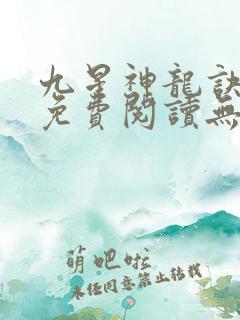 九星神龍訣
免費閱讀無
萌吧啦
未经同意禁止转载